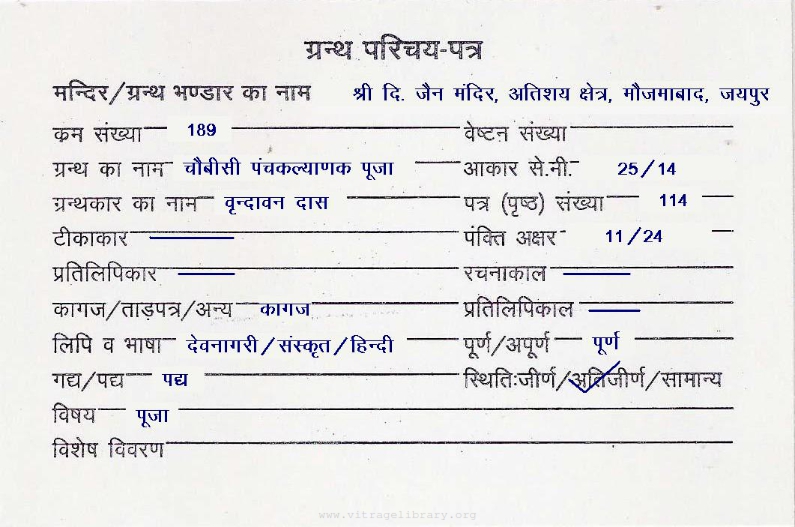 ग्रन्थ परिचय-पत्र
मन्दिर/ग्रन्थ भण्डार का नाम श्री दि. जैन मंदिर, अतिशय क्षेत्र, मौजमाबाद, जयपुर
कम संख्या 189 वेष्टन संख्या
ग्रन्थ का नाम चौबीसी पंचकल्याणक पूजा आकार से.नी. 25/14
ग्रन्थकार का नाम वृन्दावन दास पत्र (पृष्ठ) संख्या 114
टीकाकार पंक्ति अक्षर 11/24
प्रतिलिपिकार रचनाकाल
कागज/ताड़पत्र/अन्य कागज प्रतिलिपिकाल
लिपि व भाषा देवनागरी/संस्कृत/हिन्दी पूर्ण/अपूर्ण पूर्ण
गद्य/पद्य पद्य स्थितिःजीर्ण/अतिजीर्ण/सामान्य
विषय पूजा
विशेष विवरण
www.vitragelibrary.org